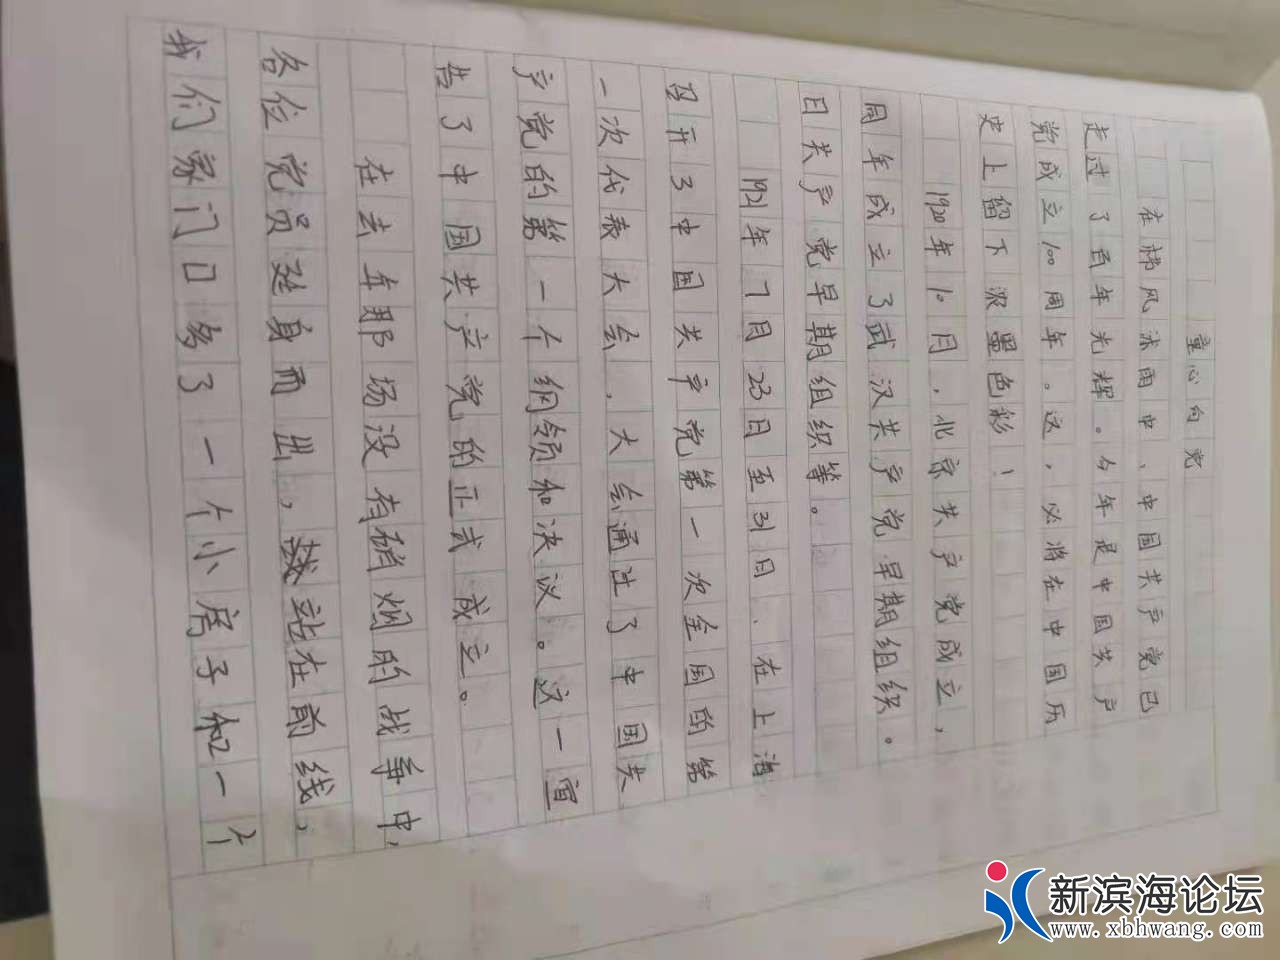 童心向党
在栉风沐雨中、中国共产党已
走过了百年光辉。今年是中国共产
党成立100周年。这，必将在中国历
史上留下浓墨色彩！
1920年10月，北京共产党成立，
同年成立了武汉共产党早期组织。
日共产党早期组织等。
1921年7月23日至31日、在上海
召开了中国共产党第一次全国的第
一次代表大会，大会通过了中国共
产党的第一个纲领和决议。这一宣
告了中国共产党的正式成立。
在去年那场没有硝烟的战争中，
各位党员挺身而出，站在前线，
我们家门口多了一个小房子和一个
新滨海论坛
www.xbhwang.com